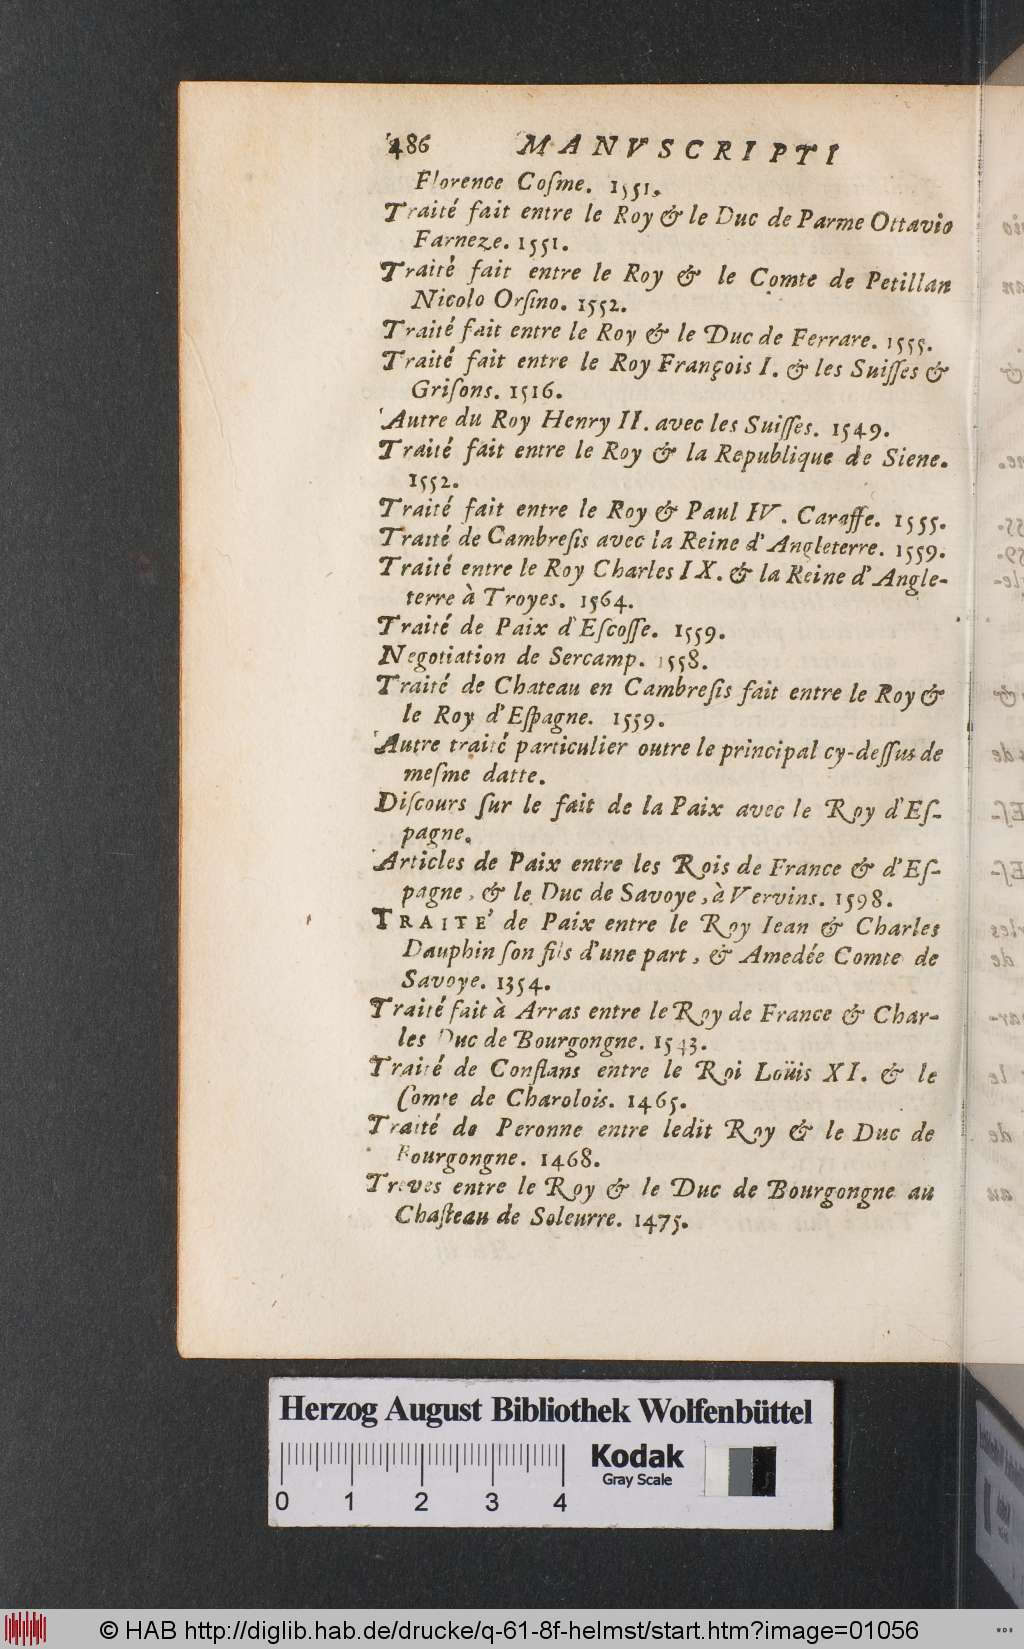 486 MANVSCRIPTI
Florence Coſme. 1551.
Traité fait entre le Roy & le Duc de Parme Ottavio
Farneze. 1551.
Traité fait entre le Roy & le Comte de Petillan
Nicolo Orſino. 1552.
Traité fait entre le Roy & le Duc de Ferrare. 1555.
Traité fait entre le Roy François I. & les Suiſſes &
Griſons. 1516.
Autre du Roy Henry II. avec les Suiſſes. 1549.
Traité fait entre le Roy & la Republique de Siene.
1552.
Traité fait entre le Roy & Paul IV. Caraffe. 1555.
Traité de Cambreſis avec la Reine d'Angleterre. 1559.
Traité entre le Roy Charles IX. & la Reine d'Angle-
terre à Troyes. 1564.
Traité de Paix d'Eſcoſſe. 1559.
Negotiation de Sercamp. 1558.
Traité de Chateau en Cambreſis fait entre le Roy &
le Roy d'Eſpagne. 1559.
Autre traité particulier outre le principal cy-deſſus de
meſme datte.
Diſcours ſur le fait de la Paix avec le Roy d'Eſ-
pagne.
Articles de Paix entre les Rois de France & d'Eſ-
pagne, & le Duc de Savoye, à Vervins. 1598.
TRAITE' de Paix entre le Roy Iean & Charles
Dauphin ſon fils d'une part, & Amedée Comte de
Savoye. 1354.
Traité fait à Arras entre le Roy de France & Char-
les Duc de Bourgongne. 1543.
Traité de Conflans entre le Roi Loüis XI. & le
Comte de Charolois. 1465.
Traité de Peronne entre ledit Roy & le Duc de
Bourgongne. 1468.
Treves entre le Roy & le Duc de Bourgongne au
Chaſteau de Soleurre. 1475.
Herzog August Bibliothek Wolfenbüttel
Kodak
Gray Scale
0 1 2 3 4
© HAB http://diglib.hab.de/drucke/q-61-8f-helmst/start.htm?image=01056